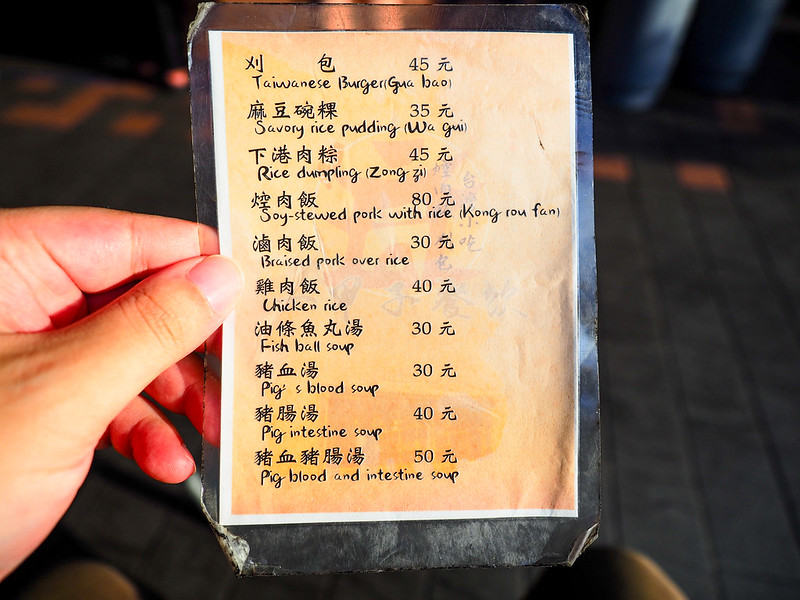 刈 包 45 元
Taiwanese Burger(Gua bao)
麻豆碗粿 35 元
Savory rice pudding (Wa gui)
下港肉粽 45 元
Rice dumpling (Zong zi)
焢肉飯 80 元
Soy-stewed pork with rice (Kong rou fan)
滷肉飯 30 元
Braised pork over rice
雞肉飯 40 元
Chicken rice
油條魚丸湯 30 元
Fish ball soup
豬血湯 30 元
Pig's blood soup
豬腸湯 40 元
Pig intestine soup
豬血豬腸湯 50 元
Pig blood and intestine soup